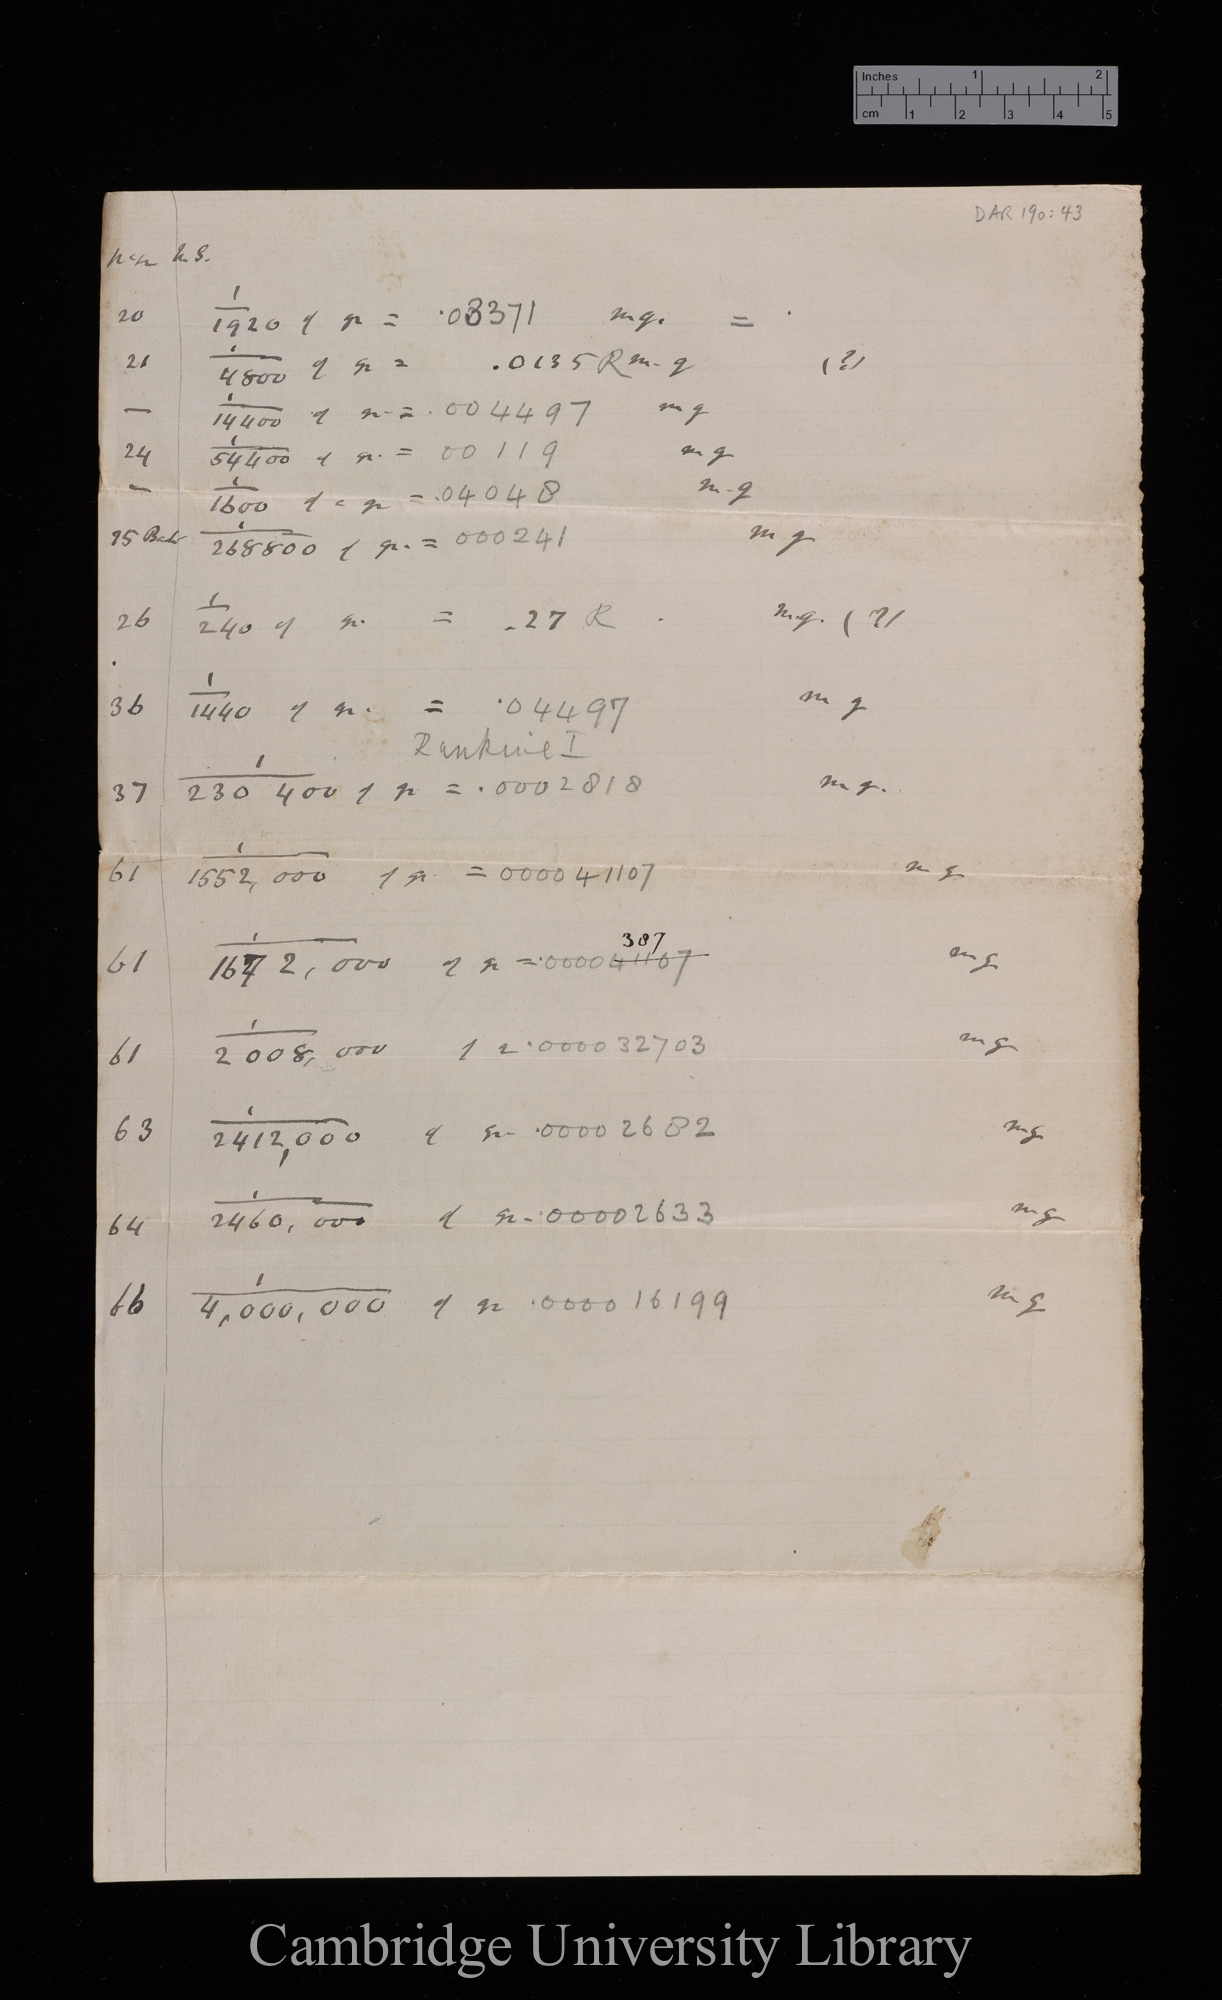 Inches 1 2
cm 1 2 3 4 5
DAR 190:43
M.S.
20 1/1920 of gr = .03371 mg. = .
21 1/4800 of gr = .0135 R mg (?)
— 1/14400 of gr. = .004497 mg
24 1/54400 of gr. = 00119 mg
— 1/1600 of a gr = .04048 mg
25 Back 1/268800 of gr. = 000241 mg
26 1/240 of gr. = .27 R mg. (?)
36 1/1440 of gr. = .04497 mg
Rankine I
37 1/230400 of gr = .0002818 mg.
61 1/1552,000 of gr = 000041107 mg
387
61 1/1672,000 of gr = .000041107 mg
61 1/2008,000 of gr .000032703 mg
63 1/2412,000 of gr - .00002682 mg
64 1/2460,000 of gr - .00002633 mg
66 1/4,000,000 of gr .000016199 mg
Cambridge University Library